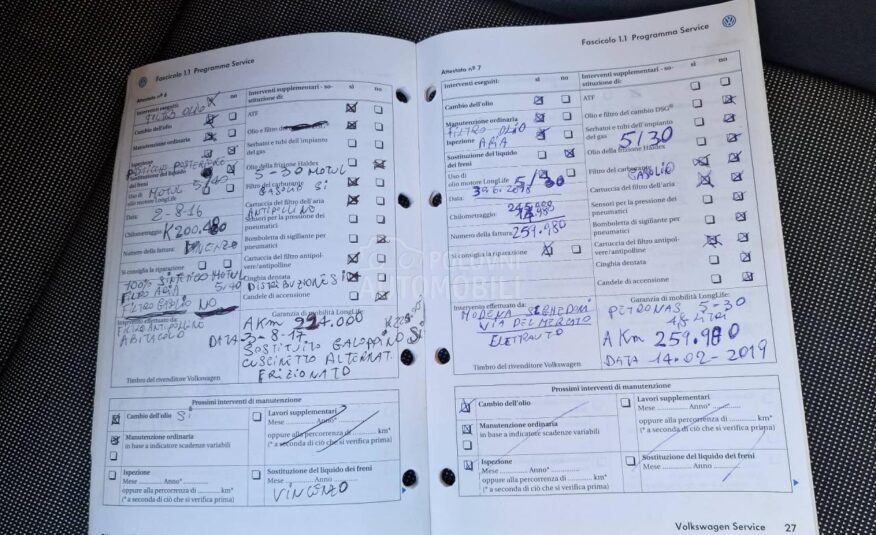 Fascicolo 1.1 Programma Service
Attestato n° 6
Interventi eseguiti: sì no
FILTRO OLIO
Cambio dell'olio
Manutenzione ordinaria
Ispezione
Sostituzione del liquido
dei freni
Uso di MOTUL 5/40
olio motore LongLife
Data: 2-8-16
Chilometraggio:
Numero della fattura:
Si consiglia la riparazione
100% SINTETICO MOTUL
FILTRO ARIA 5/40
FILTRO GASOLIO NO
Intervento effettuato da:
FILTRO ANTIPOLLINO
ABITACOLO
Timbro del rivenditore Volkswagen
Interventi supplementari - so-
stituzione di: sì no
ATF
Olio e filtro
Serbatoi e tubi dell'impianto
del gas
Olio della frizione Haldex
5-30 MOTUL
Filtro del carburante
GASOLIO SI
Cartuccia del filtro dell'aria
ANTIPOLLINO
Sensori per la pressione dei
pneumatici
Bomboletta di sigillante per
pneumatici
Cartuccia del filtro antipol-
vere/antipolline
Cinghia dentata
DISTRIBUZIONE SI
Candele di accensione
Garanzia di mobilità LongLife:
A Km 224.000
DATA 3-8-17
SOSTITUITO GALOPPINO SI
CUSCINETTO ALTERNAT.
FRIZIONATO
Prossimi interventi di manutenzione
Cambio dell'olio SI
Manutenzione ordinaria
in base a indicatore scadenze variabili
Ispezione
Mese ........ Anno*........
oppure alla percorrenza di ........ km*
(* a seconda di ciò che si verifica prima)
Lavori supplementari
Mese ........ Anno*........
oppure alla percorrenza di ........ km*
(* a seconda di ciò che si verifica prima)
Sostituzione del liquido dei freni
Mese ........ Anno ........
VINCENZO
Fascicolo 1.1 Programma Service
Attestato n° 7
Interventi eseguiti: sì no
Cambio dell'olio
Manutenzione ordinaria
FILTRO OLIO
Ispezione ARIA
Sostituzione del liquido
dei freni
Uso di 5/30
olio motore LongLife
Data:
Chilometraggio:
Numero della fattura: 259.980
Si consiglia la riparazione
Intervento effettuato da:
MODENA
VIA DEL MERCATO
ELETTRAUTO
Timbro del rivenditore Volkswagen
Interventi supplementari - so-
stituzione di: sì no
ATF
Olio e filtro del cambio DSG®
Serbatoi e tubi dell'impianto
del gas 5/30
Olio della frizione Haldex
Filtro del carburante
GASOLIO
Cartuccia del filtro dell'aria
Sensori per la pressione dei
pneumatici
Bomboletta di sigillante per
pneumatici
Cartuccia del filtro antipol-
vere/antipolline
Cinghia dentata
Candele di accensione
Garanzia di mobilità LongLife:
PETRONAS 5-30
LITRI
A Km 259.980
DATA 14-02-2019
Prossimi interventi di manutenzione
Cambio dell'olio
Manutenzione ordinaria
in base a indicatore scadenze variabili
Ispezione
Mese ........ Anno*........
oppure alla percorrenza di ........ km*
(* a seconda di ciò che si verifica prima)
Lavori supplementari
Mese ........ Anno*........
oppure alla percorrenza di ........ km*
(* a seconda di ciò che si verifica prima)
Sostituzione del liquido dei freni
Mese ........ Anno ........
Volkswagen Service 27
POLOVNI
AUTOMOBILI